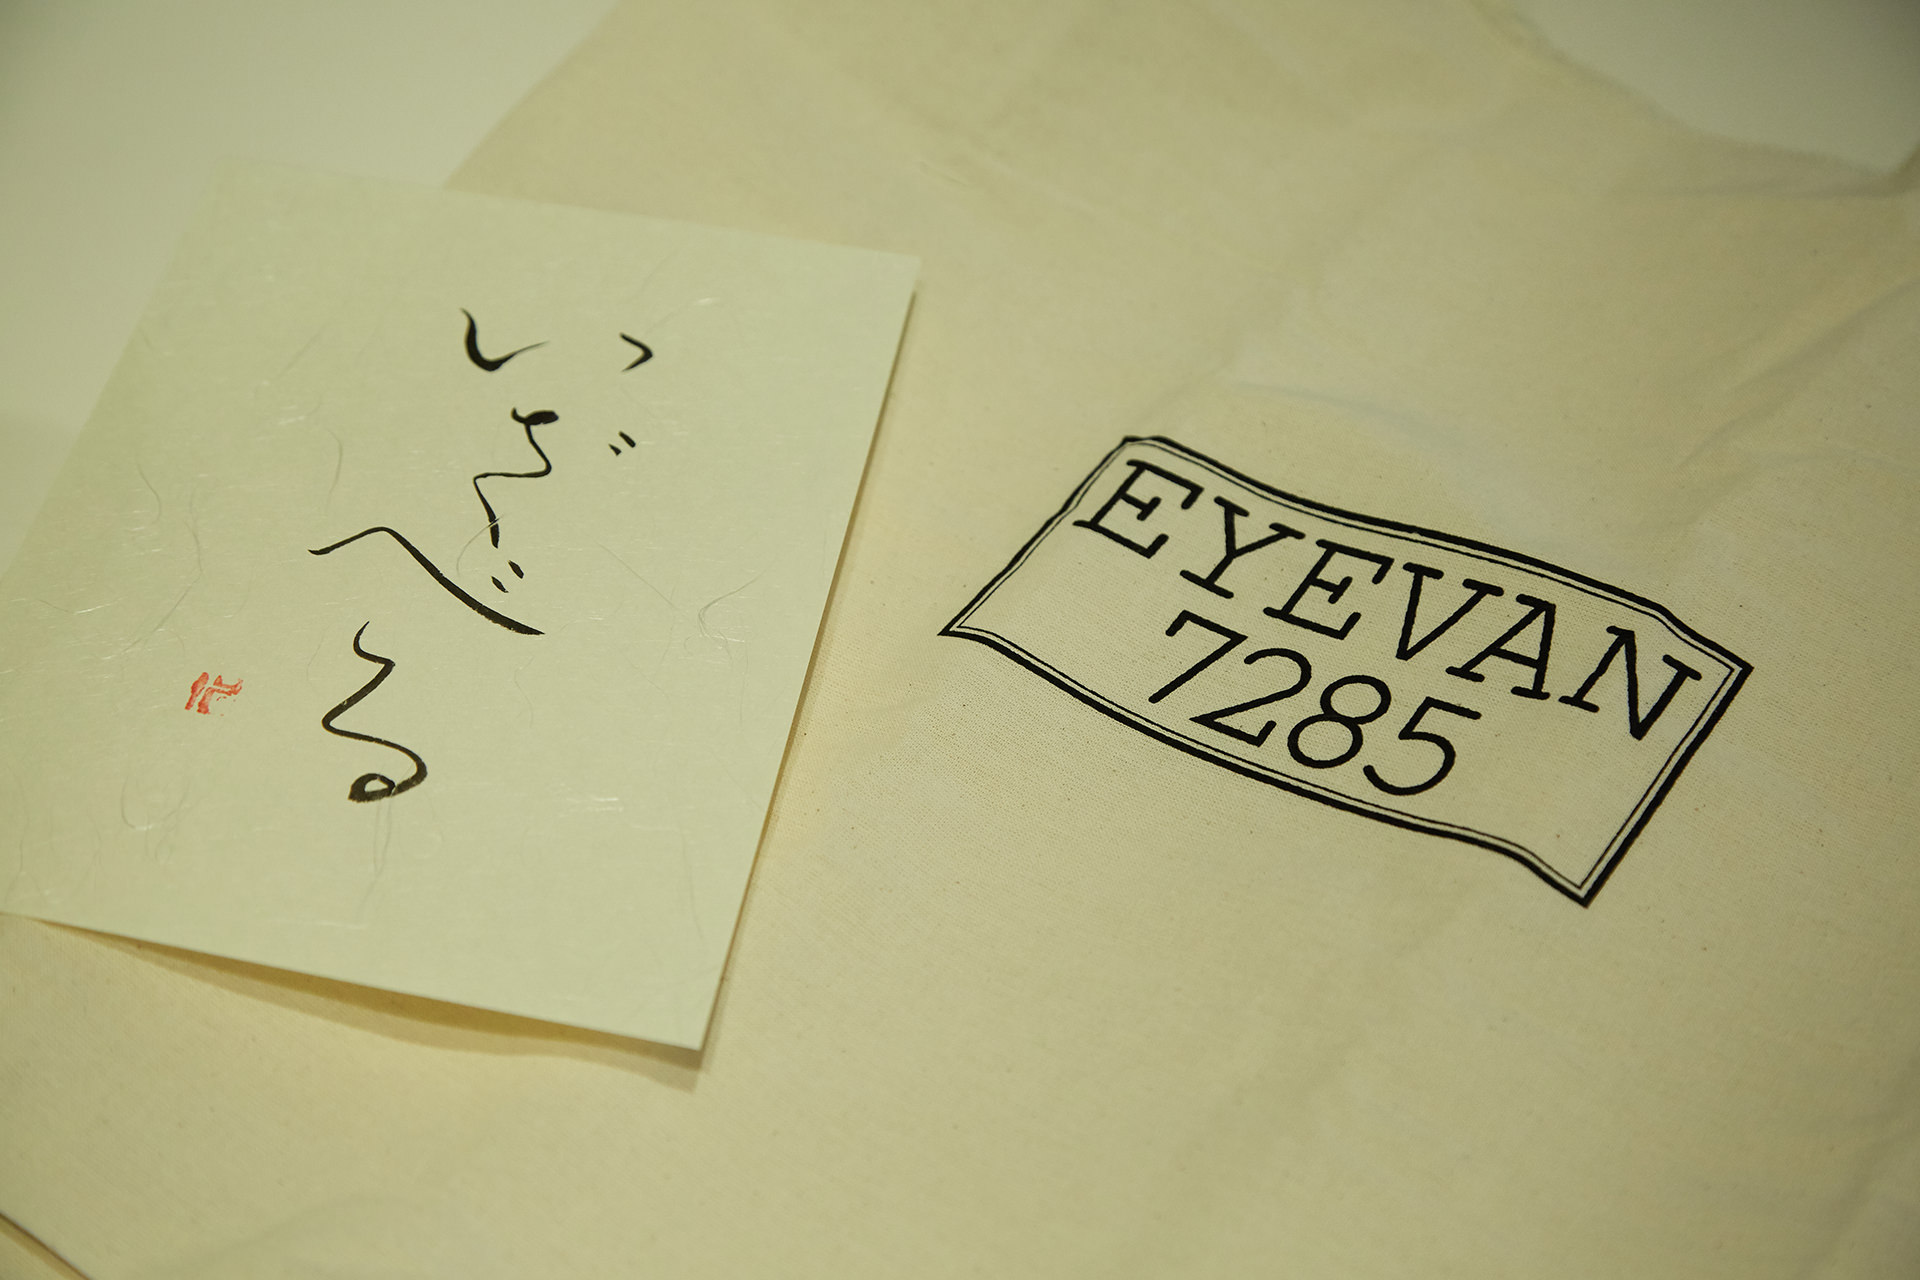 いざべる
EYEVAN
7285